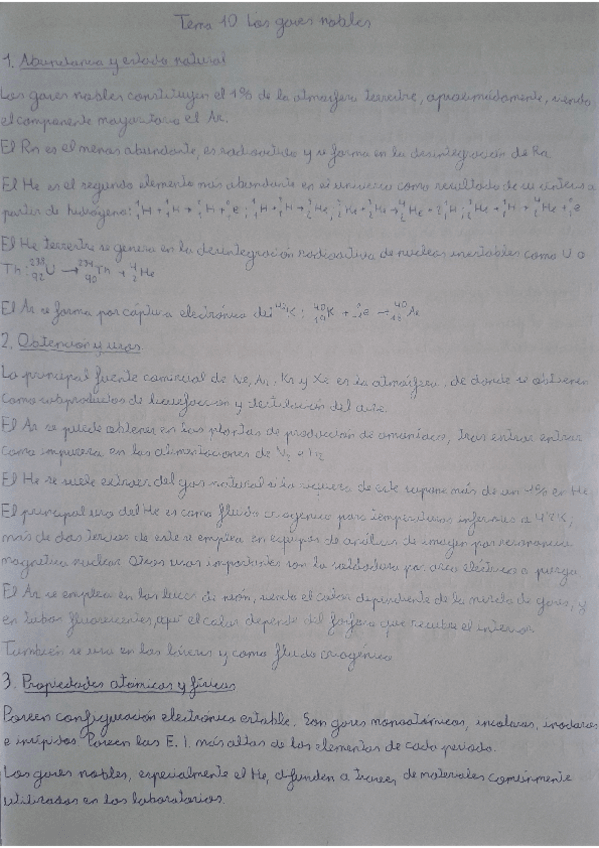 Tema 10 Los gases nobles
1. Abundancia y estado natural
Los gases nobles constituyen el 1% de la atmósfera terrestre, aproximadamente, siendo
el componente mayoritario el Ar.
El Rn es el menos abundante, es radioactivo y se forma en la desintegración de Ra
El He es el segundo elemento más abundante en el universo como resultado de su síntesis a
partir de hidrógeno:
El He terrestre se genera en la desintegración radioactiva de nucleos inestables como U o
Th: ²³⁸₉₂U → ²³⁴₉₀Th + ⁴₂He
El Ar se forma por captura electrónica del ⁴⁰K: ⁴⁰₁₉K + e → ⁴⁰₁₈Ar
2. Obtención y usos
La principal fuente comercial de Ne, Ar, Kr y Xe es la atmósfera, de donde se obtienen
como subproductos de licuefacción y destilación del aire.
El Ar se puede obtener en las plantas de producción de amoniaco, tras entrar entrar
como impureza en las alimentaciones de N₂ e H₂
El He se suele extraer del gas natural si la riqueza de este supone más de un 1% en He
El principal uso del He es como fluido criogénico para temperaturas inferiores a K;
más de dos tercios de este se emplea en equipos de análisis de imagen por resonancia
magnética nuclear. Otros usos importantes son la soldadura por arco eléctrico o purga
El Ar se emplea en las luces de neón, siendo el color dependiente de la mezcla de gases, y
en tubos fluorescentes, aquí el color depende del fósforo que recubre el interior
También se usa en los láseres y como fluido criogénico
3. Propiedades atómicas y físicas
Poseen configuración electrónica estable. Son gases monoatómicos, incoloros, inodoros
e insípidos. Poseen las E. I. más altas de los elementos de cada periodo.
Los gases nobles, especialmente el He, difunden a traves de materiales comúnmente
utilizados en los laboratorios.